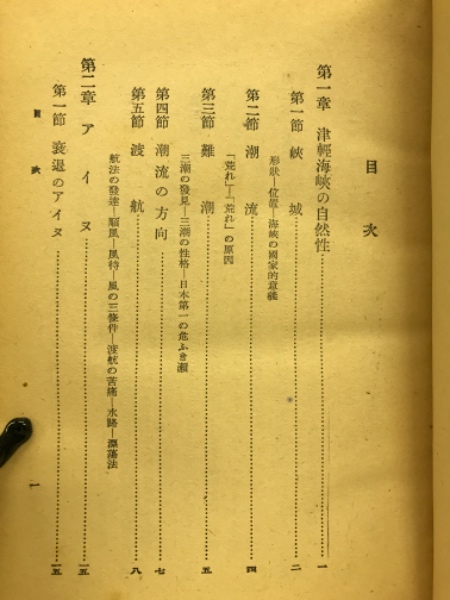 目次
第一章 津輕海峽の自然性……一
第一節 峽域……二
形狀―位置―海峽の國家的意義
第二節 潮流……四
「荒れ」―「荒れ」の原因
第三節 難潮……五
三潮の發見―三潮の性格―日本第一の危ふき瀬
第四節 潮流の方向……七
第五節 渡航……八
航法の發達―順風―風待―風の三條件―渡航の苦痛―水路―漂蕩法
第二章 アイヌ……一五
第一節 衰退のアイヌ……一五
目次
一